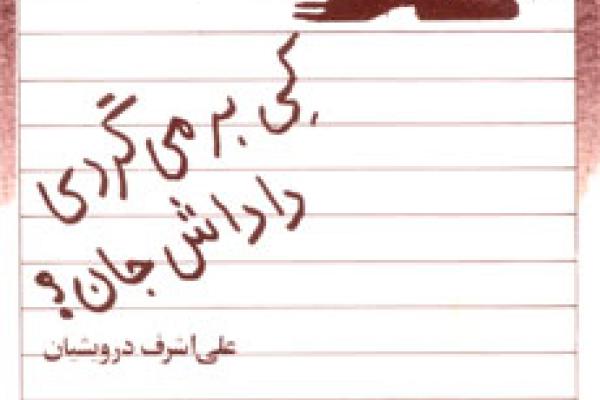 کِی برمی‌گردی
داداش جان؟
علی‌اشرف درویشیان